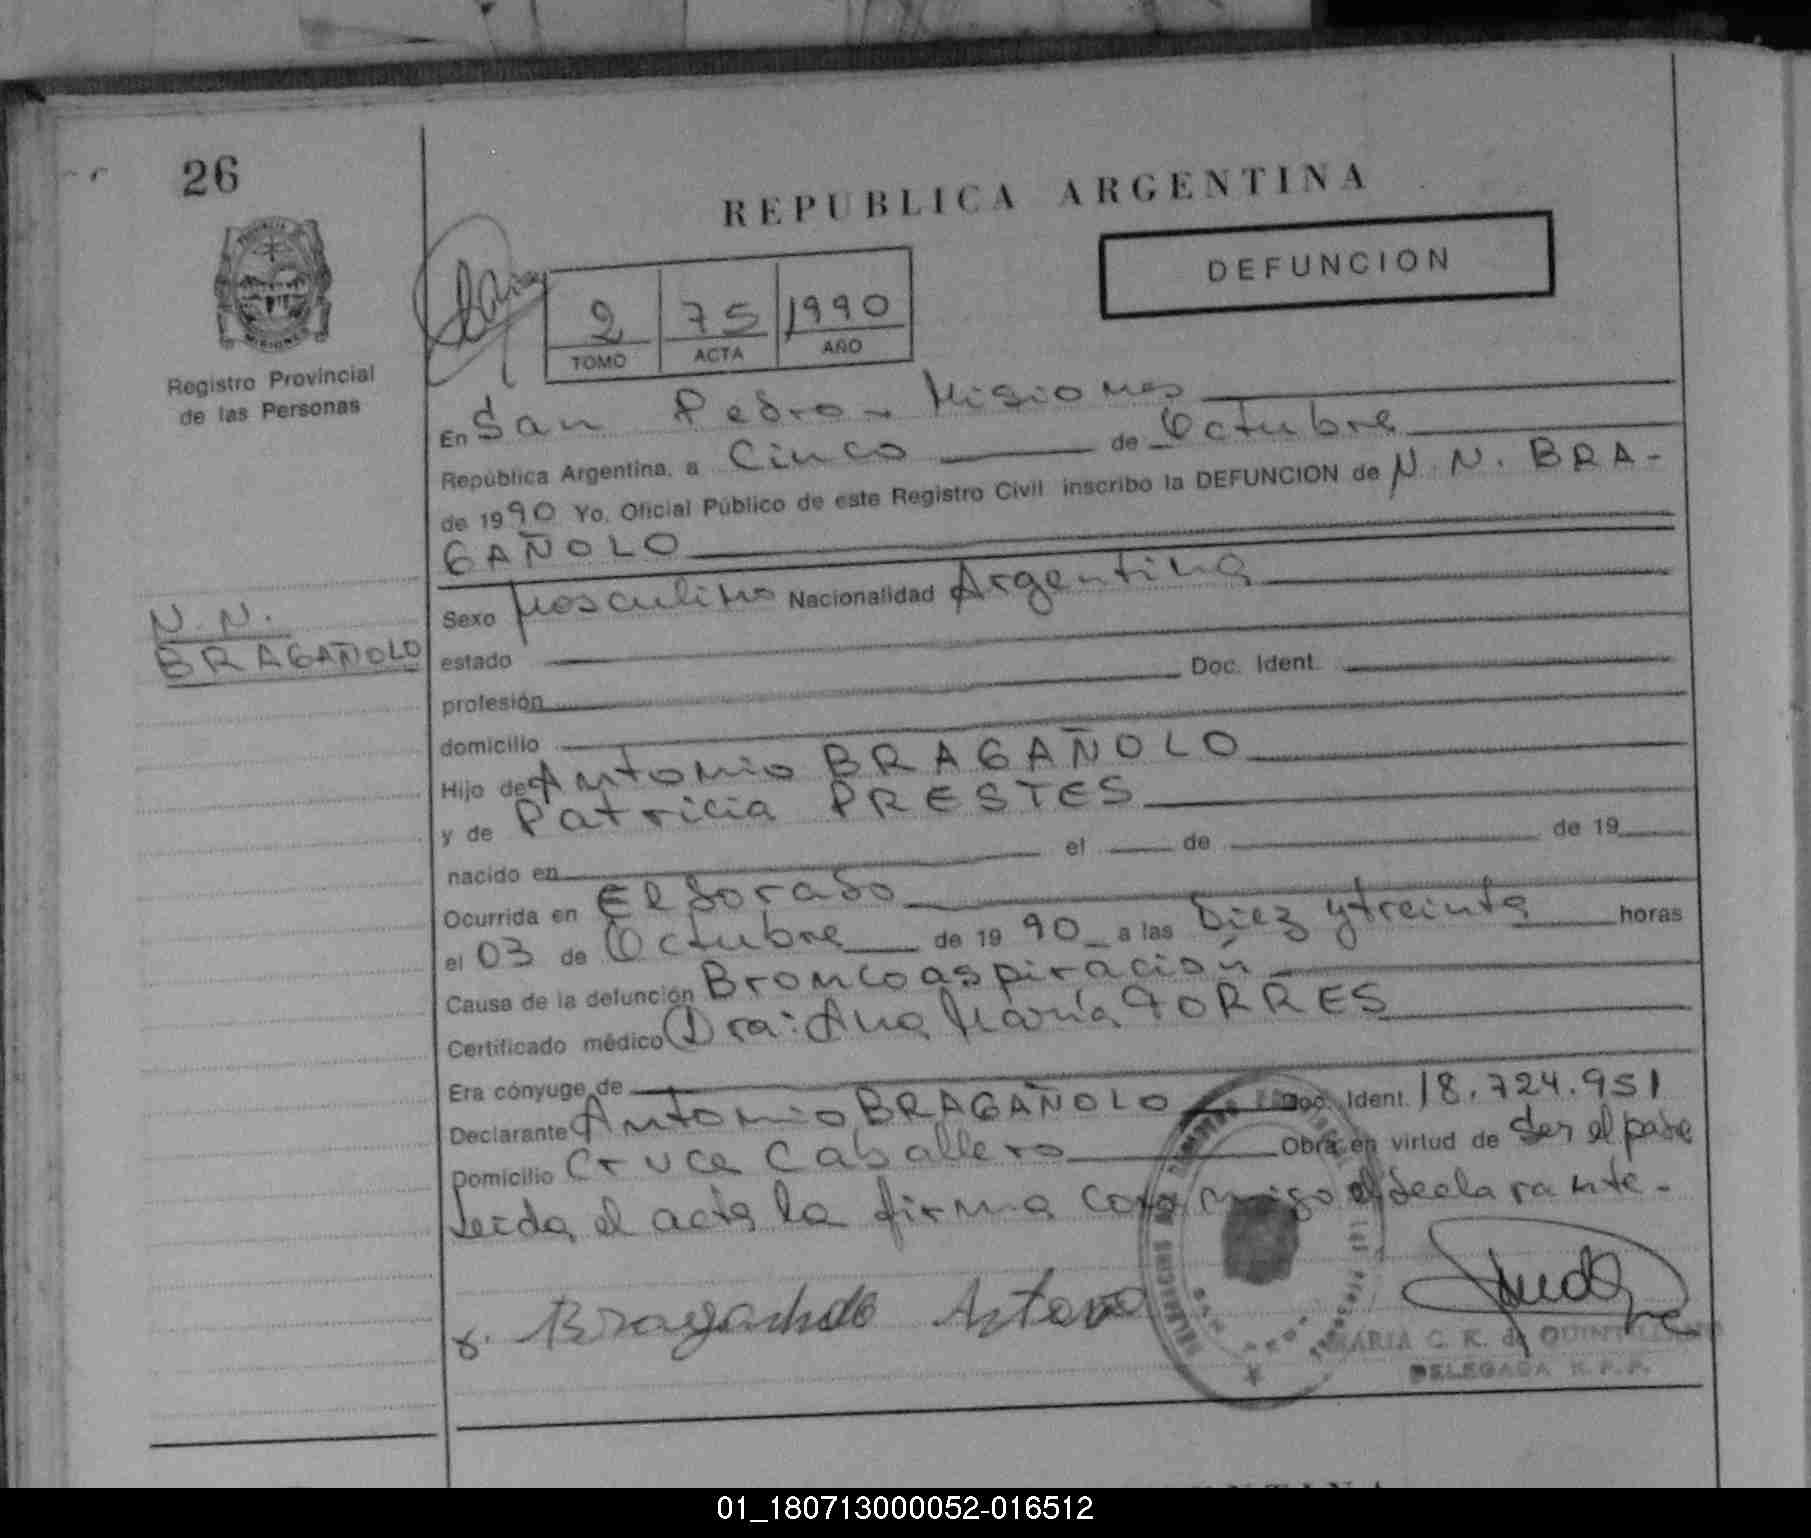 26
REPUBLICA ARGENTINA
DEFUNCION
2 75 1990
TOMO ACTA AÑO
Registro Provincial
de las Personas
En San Pedro - Misiones
República Argentina, a Cinco de Octubre
de 1990 Yo, Oficial Público de este Registro Civil inscribo la DEFUNCION de N. N. BRA-
GAÑOLO
N. N.
BRAGAÑOLO
Sexo Masculino Nacionalidad Argentina
estado
profesión Doc. Ident.
domicilio
Hijo de Antonio BRAGAÑOLO
y de Patricia PRESTES
nacido en el de de 19
Ocurrida en Eldorado
el 03 de Octubre de 1990 a las Diez y treinta horas
Causa de la defunción Broncoaspiración
Certificado médico Dra: Ana María TORRES
Era cónyuge de
Declarante Antonio BRAGAÑOLO Doc. Ident. 18.724.951
Domicilio Cruce Caballero Obra en virtud de ser el padre
Leida el acta la firma conmigo el declarante.
MARIA C. R. de
DELEGADA R. P. P.
01_180713000052-016512